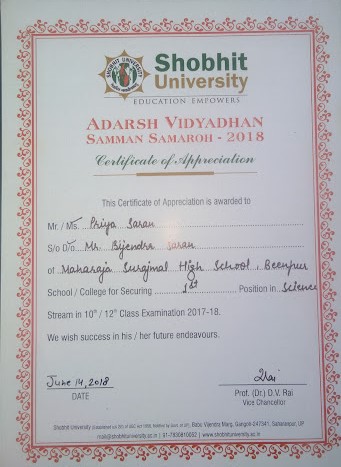 SHOBHIT UNIVERSITY
Shobhit
University
EDUCATION EMPOWERS
ADARSH VIDYADHAN
SAMMAN SAMAROH - 2018
Certificate of Appreciation
This Certificate of Appreciation is awarded to
Mr. / Ms. Priya Saran
S/o D/o Mr. Bijendra Saran
of Maharaja Surajmal High School, Beenpur
School / College for Securing 1st Position in Science
Stream in 10th / 12th Class Examination 2017-18.
We wish success in his / her future endeavours.
June 14, 2018
DATE
Rai
Prof. (Dr.) D.V. Rai
Vice Chancellor
Shobhit University Babu Vijendra Marg, Gangoh-247341, Saharanpur, UP
mail@shobhituniversity.ac.in | www.shobhituniversity.ac.in